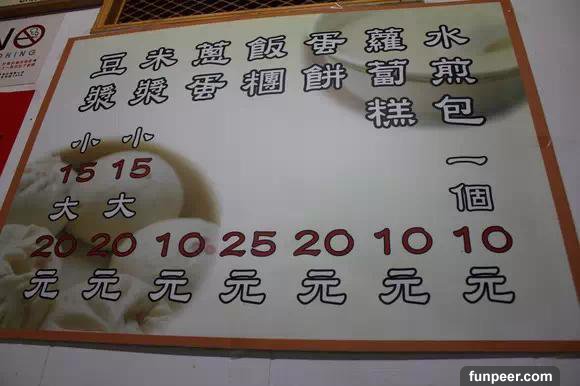 水煎包一個10元
蘿蔔糕10元
蛋餅20元
飯糰25元
蔥蛋10元
米漿小15大20元
豆漿小15大20元
KING
funpeer.com